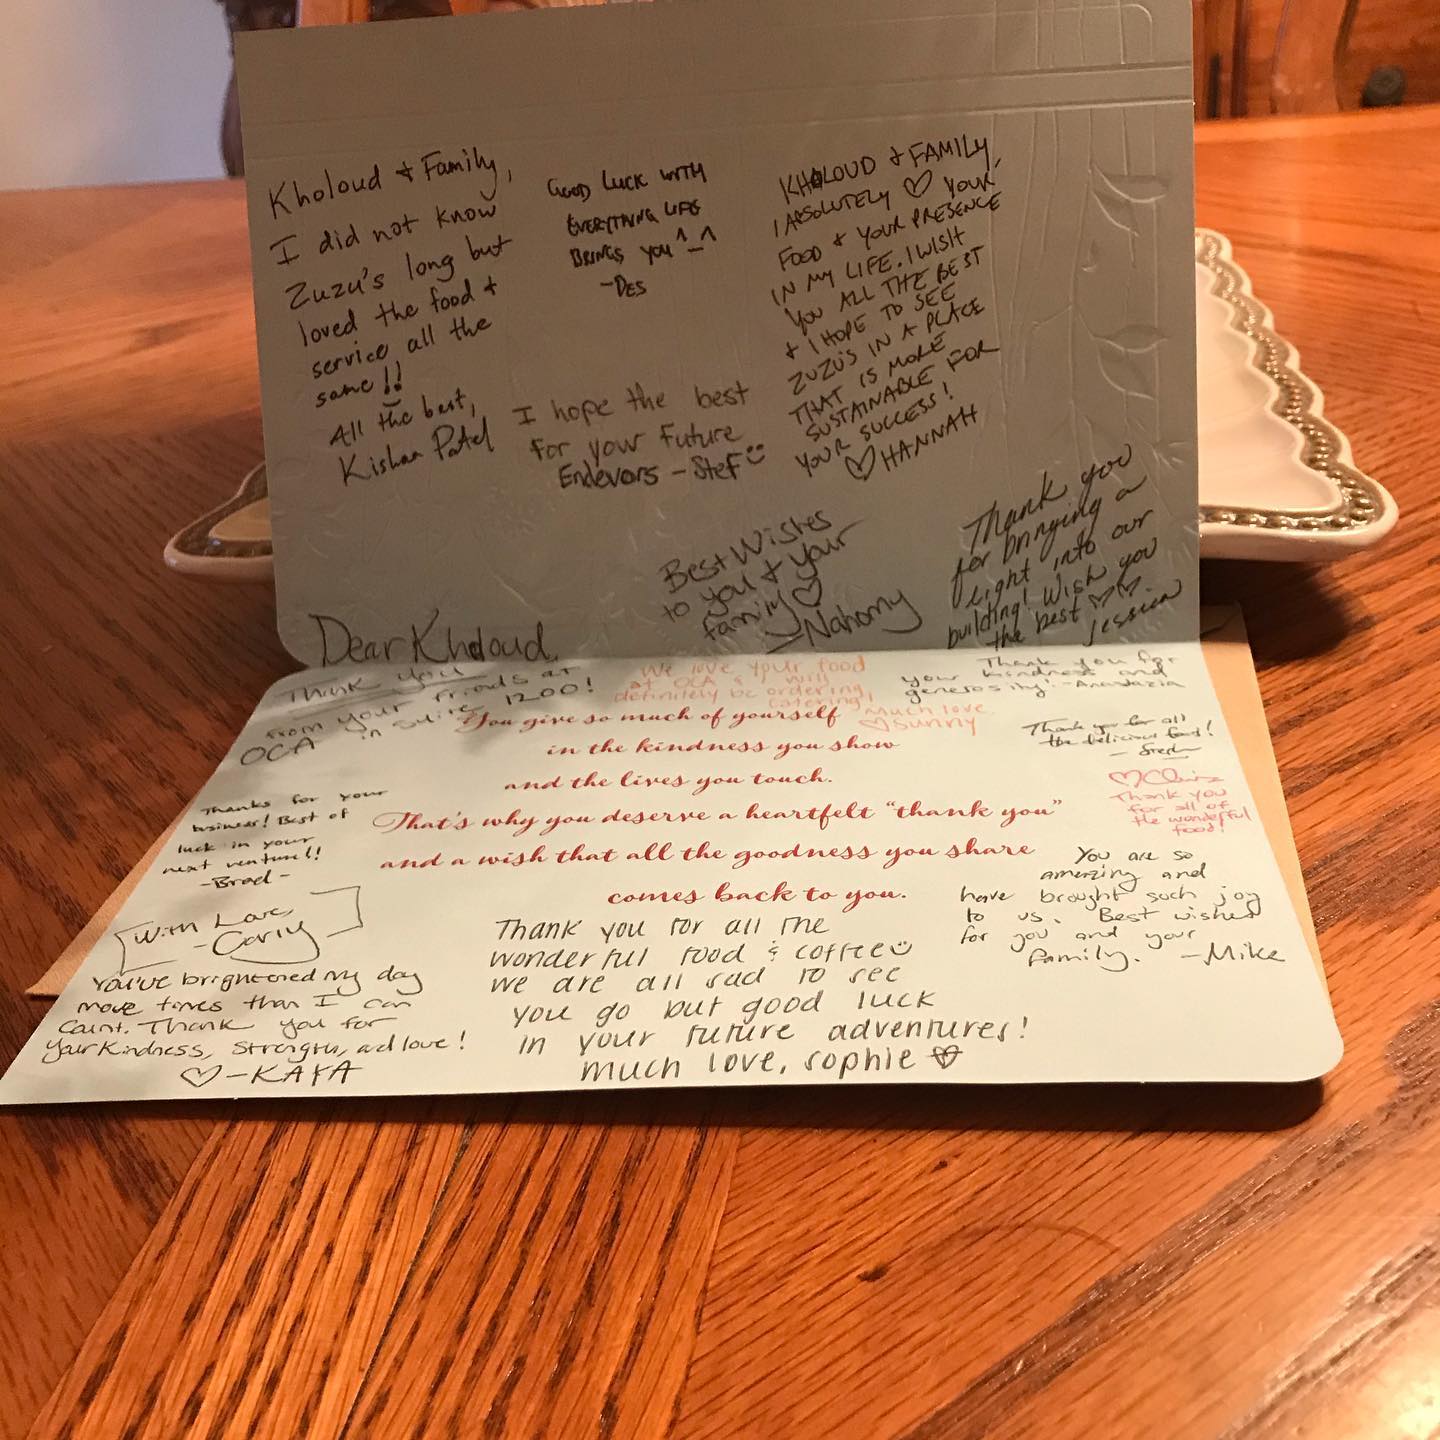 Kholoud & Family,
I did not know
Zuzu's long but
loved the food &
service all the
same!!
All the best,
Kishan Patel
GOOD LUCK WITH
EVERYTHING LIFE
BRINGS YOU ^_^
-DES
I hope the best
for your future
Endevors - Stef
KHOLOUD & FAMILY,
I ABSOLUTELY ♡ YOUR
FOOD & YOUR PRESENCE
IN MY LIFE. I WISH
YOU ALL THE BEST
& I HOPE TO SEE
ZUZU'S IN A PLACE
THAT IS MORE
SUSTAINABLE FOR
YOUR SUCCESS!
♡ HANNAH
Best Wishes
to you & your
family ♡
- Nahomy
Thank you
for bringing a
light into our
building! Wish you
the best ♡♡
Jessica
Dear Kholoud,
Thank you
from your friends at
OCA in suite 1200!
We love your food
at OCA & I will
definitely be ordering
catering!
Much love
♡ Sunny
Thank you for
your kindness and
generosity! - Anastazia
Thank you for all
the delicious food!
You give so much of yourself
in the kindness you show
and the lives you touch.
That's why you deserve a heartfelt "thank you"
and a wish that all the goodness you share
comes back to you.
Thank you
for all of
the wonderful
food!
Thanks for your
business! Best of
luck in your
next venture!!
- Brad -
With Love,
- Carly
You've brightened my day
more times than I can
count. Thank you for
your kindness, strength, and love!
♡ - KAYA
Thank you for all the
wonderful food & coffee
we are all sad to see
you go but good luck
in your future adventures!
much love, sophie
You are so
amazing and
have brought such joy
to us. Best wishes
for you and your
family. - Mike